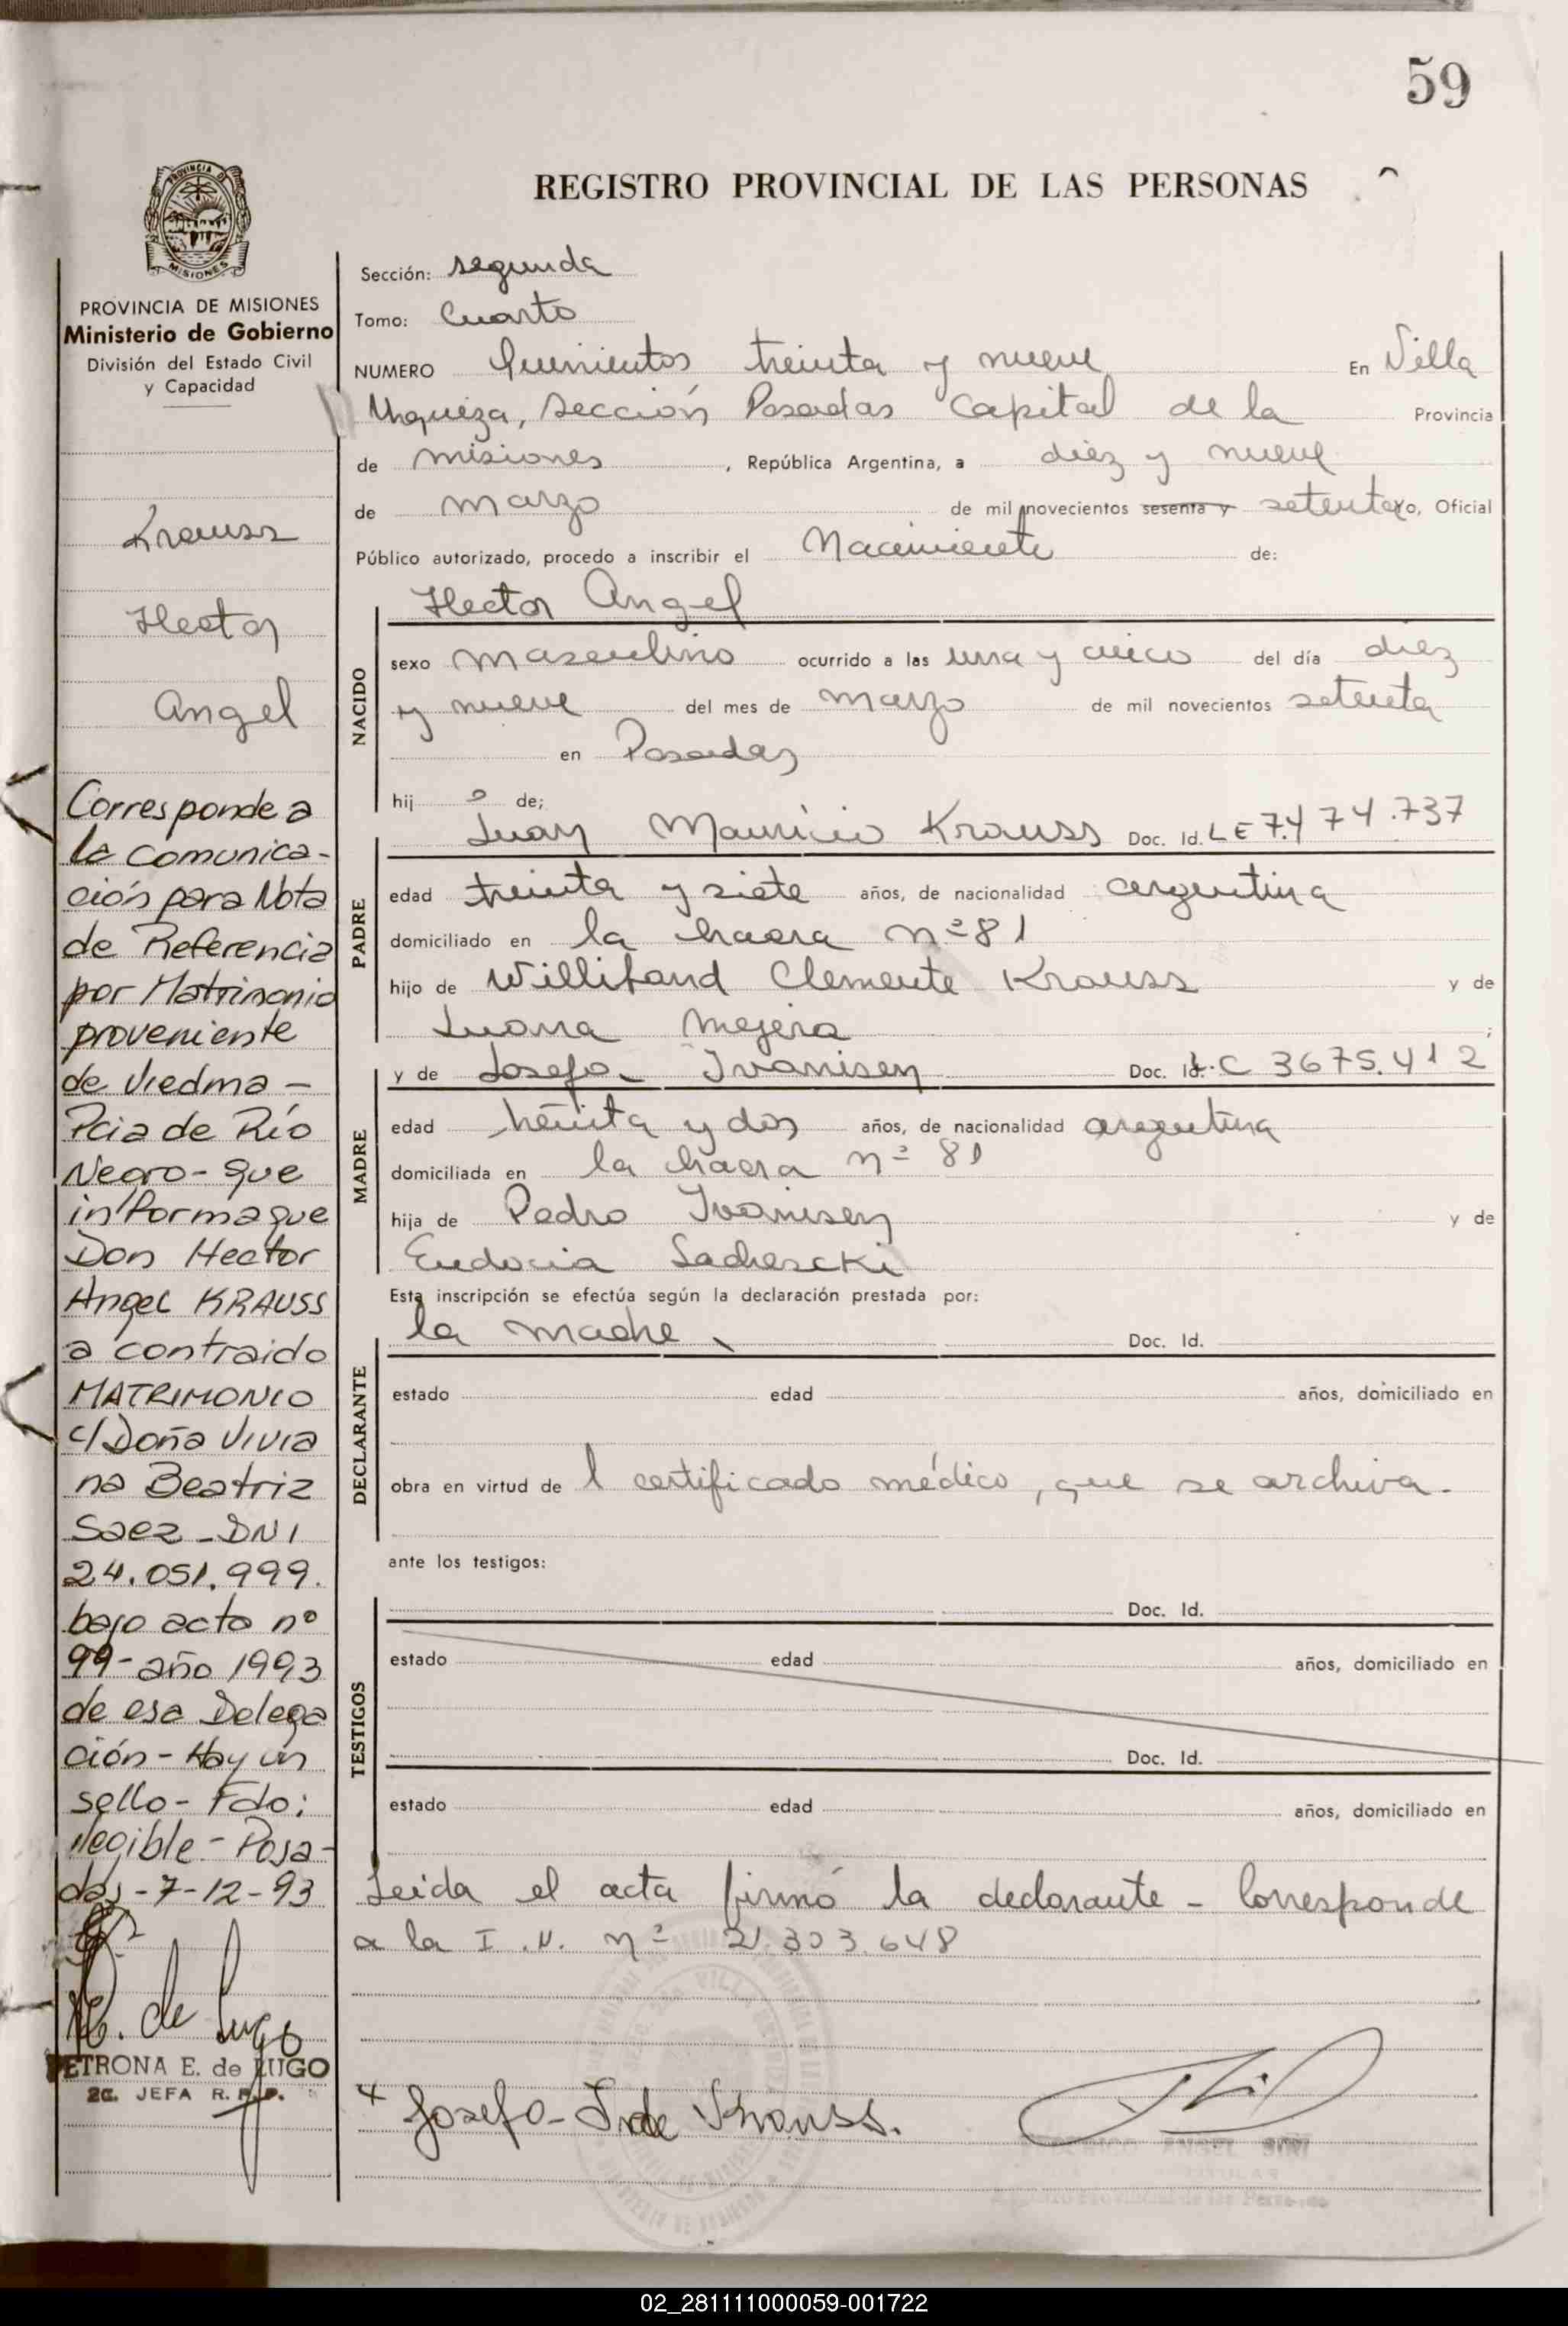 59
REGISTRO PROVINCIAL DE LAS PERSONAS
PROVINCIA DE
MISIONES
PROVINCIA DE MISIONES
Ministerio de Gobierno
División del Estado Civil
y Capacidad
Krauss
Hector
Angel
Corresponde a
la comunica-
ción para Nota
de Referencia
por Matrimonio
proveniente
de Viedma -
Pcia de Río
Negro - que
informa que
Don Hector
Angel KRAUSS
a contraido
MATRIMONIO
c/Doña Vivia
na Beatriz
Saez - DNI
24.051.999.
bajo acta nº
99 - año 1993
de esa Delega
ción - Hay un
sello - Fdo:
ilegible - Posa-
das - 7-12-93
de Lugo
PETRONA E. de LUGO
2a. JEFA R. P. P.
Sección: segunda
Tomo: Cuarto
NUMERO Quinientos treinta y nueve En Villa
Urquiza, Sección Posadas Capital de la Provincia
de misiones, República Argentina, a diez y nueve
de marzo de mil novecientos sesenta y setenta yo, Oficial
Público autorizado, procedo a inscribir el Nacimiento de:
Hector Angel
NACIDO
sexo masculino ocurrido a las una y cinco del día diez
y nueve del mes de marzo de mil novecientos setenta
en Posadas
hij o de;
Juan Mauricio Krauss Doc. Id. LE 7.474.737
PADRE
edad treinta y siete años, de nacionalidad argentina
domiciliado en la chacra nº 81
hijo de Willifand Clemente Krauss y de
Juana Mejera ;
y de Josefa Ivanisen Doc. Id. L.C 3675.412
MADRE
edad treinta y dos años, de nacionalidad argentina
domiciliada en la chacra nº 81
hija de Pedro Ivanisen y de
Eudocia
Esta inscripción se efectúa según la declaración prestada por:
la madre Doc. Id.
DECLARANTE
estado edad años, domiciliado en
obra en virtud de l certificado médico, que se archiva.
ante los testigos:
Doc. Id.
TESTIGOS
estado edad años, domiciliado en
Doc. Id.
estado edad años, domiciliado en
Leida el acta firmó la declarante - Corresponde
a la I.N. nº 21.303.648
Josefa I. de Krauss.
ANGEL
TITULAR
02_281111000059-001722